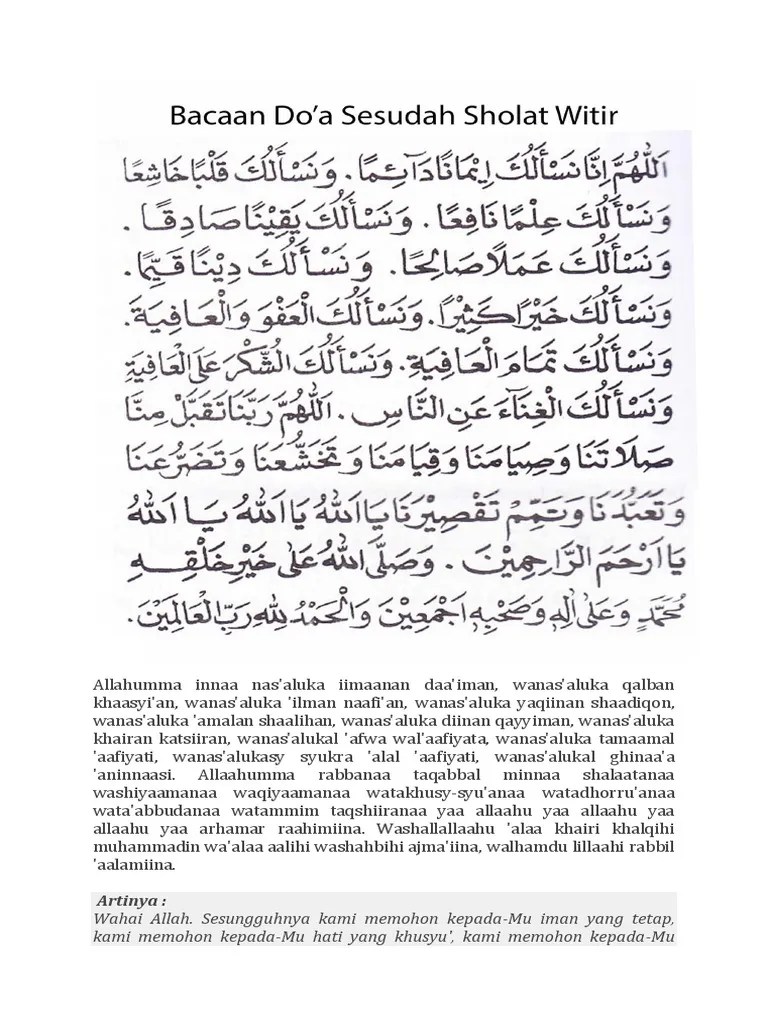 Bacaan Do'a Sesudah Sholat Witir
اَللّٰهُمَّ اِنَّا نَسْأَلُكَ اِيْمَانًا دَآئِمًا. وَنَسْأَلُكَ قَلْبًا خَاشِعًا
وَنَسْأَلُكَ عِلْمًا نَافِعًا. وَنَسْأَلُكَ يَقِيْنًا صَادِقًا.
وَنَسْأَلُكَ عَمَلًا صَالِحًا. وَنَسْأَلُكَ دِيْنًا قَيِّمًا.
وَنَسْأَلُكَ خَيْرًا كَثِيْرًا. وَنَسْأَلُكَ الْعَفْوَ وَالْعَافِيَةَ.
وَنَسْأَلُكَ تَمَامَ الْعَافِيَةِ. وَنَسْأَلُكَ الشُّكْرَ عَلَى الْعَافِيَةِ
وَنَسْأَلُكَ الْغِنَآءَ عَنِ النَّاسِ. اَللّٰهُمَّ رَبَّنَا تَقَبَّلْ مِنَّا
صَلَاتَنَا وَصِيَامَنَا وَقِيَامَنَا وَتَخَشُّعَنَا وَتَضَرُّعَنَا
وَتَعَبُّدَنَا وَتَمِّمْ تَقْصِيْرَنَا يَا اَللّٰهُ يَا اَللّٰهُ يَا اَللّٰهُ
يَا اَرْحَمَ الرَّاحِمِيْنَ. وَصَلَّى اللّٰهُ عَلٰى خَيْرِ خَلْقِهِ
مُحَمَّدٍ وَعَلٰى اٰلِهِ وَصَحْبِهِ اَجْمَعِيْنَ وَالْحَمْدُ لِلّٰهِ رَبِّ الْعَالَمِيْنَ.
Allahumma innaa nas'aluka iimaanan daa'iman, wanas'aluka qalban
khaasyi'an, wanas'aluka 'ilman naafi'an, wanas'aluka yaqiinan shaadiqon,
wanas'aluka 'amalan shaalihan, wanas'aluka diinan qayyiman, wanas'aluka
khairan katsiiran, wanas'alukal 'afwa wal'aafiyata, wanas'aluka tamaamal
'aafiyati, wanas'alukasy syukra 'alal 'aafiyati, wanas'alukal ghinaa'a
'aninnaasi. Allaahumma rabbanaa taqabbal minnaa shalaatanaa
washiyaamanaa waqiyaamanaa watakhusy-syu'anaa watadhorru'anaa
wata'abbudanaa watammim taqshiiranaa yaa allaahu yaa allaahu yaa
allaahu yaa arhamar raahimiina. Washallallaahu 'alaa khairi khalqihi
muhammadin wa'alaa aalihi washahbihi ajma'iina, walhamdu lillaahi rabbil
'aalamiina.
Artinya :
Wahai Allah. Sesungguhnya kami memohon kepada-Mu iman yang tetap,
kami memohon kepada-Mu hati yang khusyu', kami memohon kepada-Mu